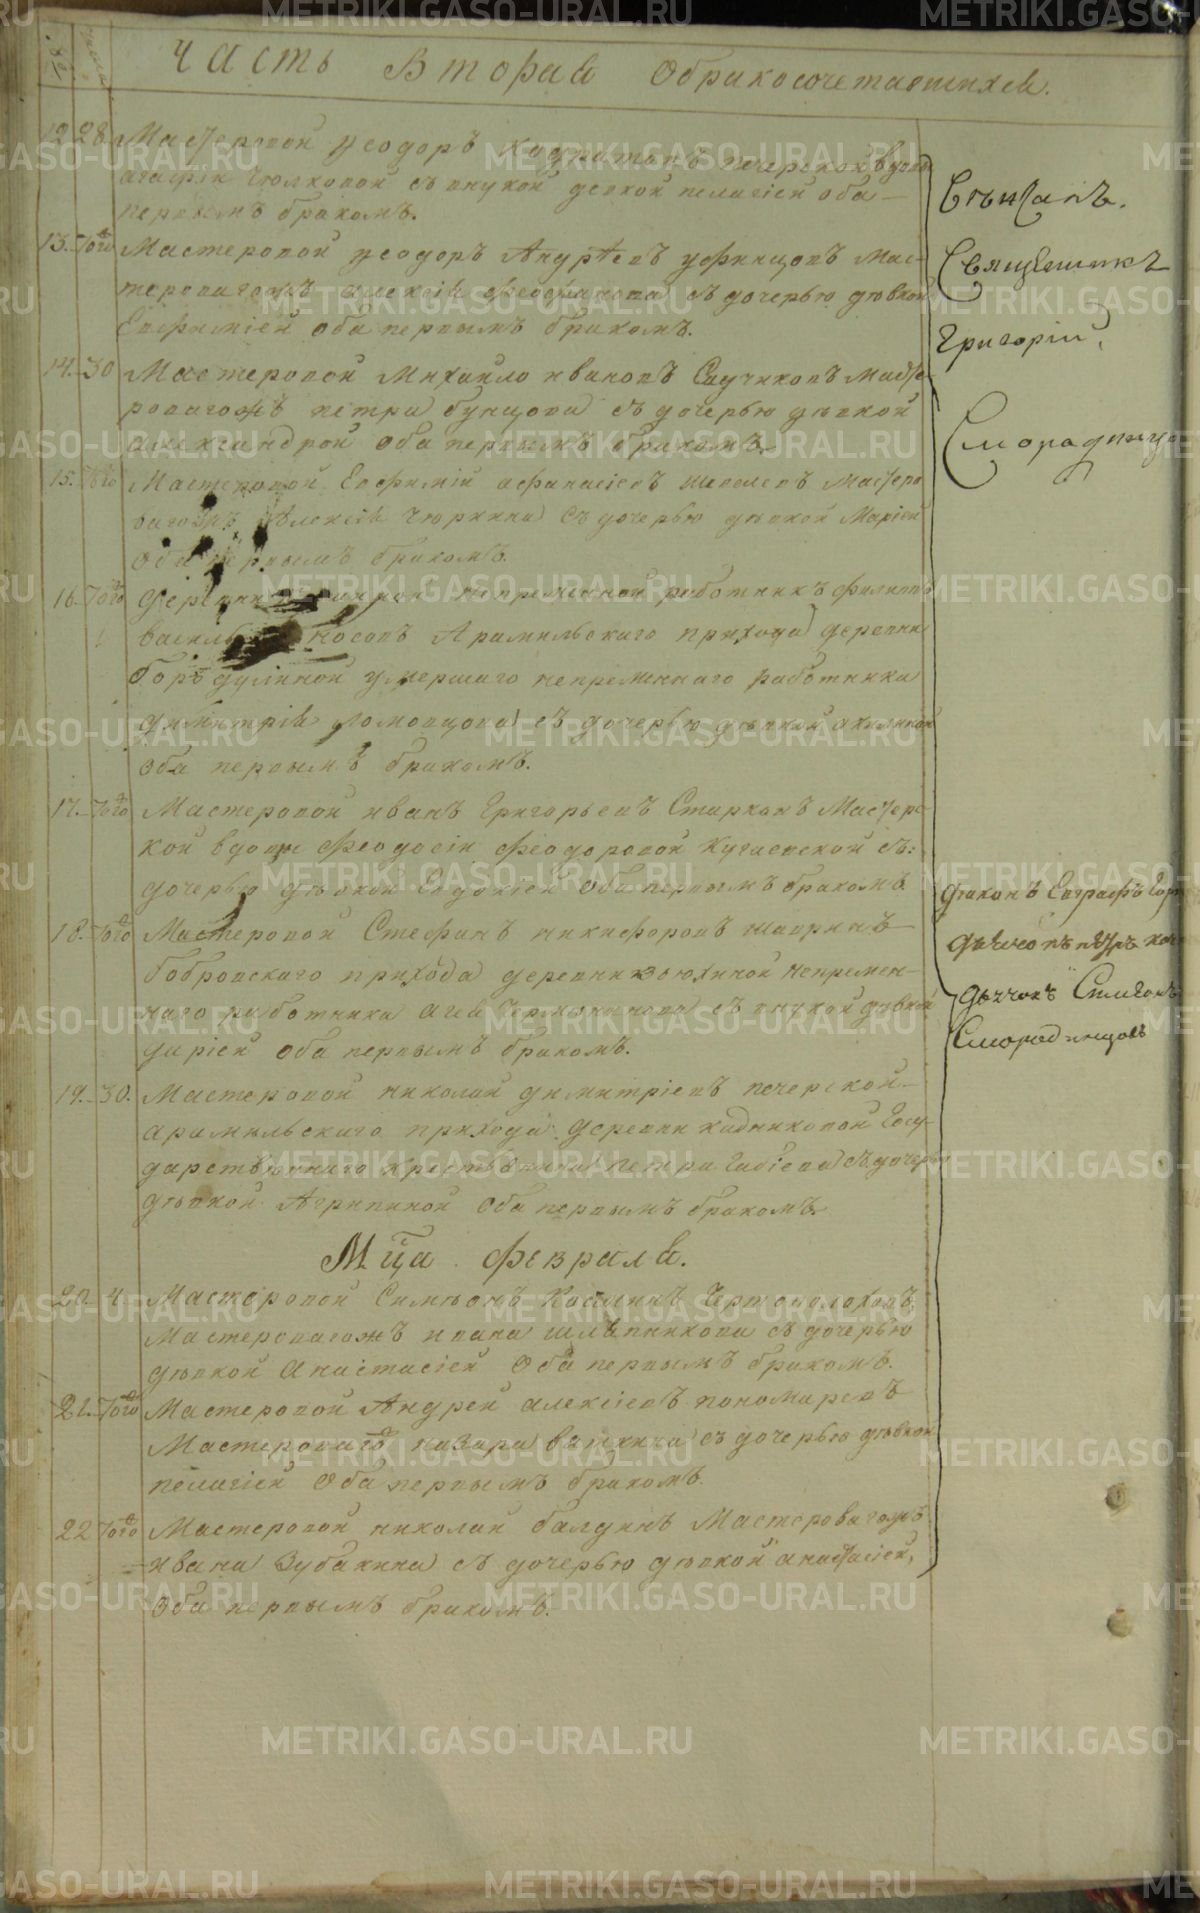 Часть Вторая О бракосочетавшихся.
12. 28. Мастеровой Феодоръ печерской вдовы
агафiи съ внукой девкой пелагiей оба
первымъ бракомъ.
13. Того Мастеровой Феодоръ Андреевъ уфинцовъ Мас-
тероваго жъ алексiя Феофанова съ дочерью девкой
Евфимiей оба первымъ бракомъ.
14. 30 Мастеровой Михайло ивановъ Масте-
роваго жъ петра бунцова съ дочерью девкой
александрой оба первымъ бракомъ.
15. Того Мастеровой Евфимiй афанасiевъ шепелевъ Мастеро
ваго жъ Алексiя Чюркина съ дочерью девкой Марiей
оба первымъ бракомъ.
16. Того деревни непременной работникъ филиппъ
носовъ Арамильскаго прихода деревни
бородулиной умершаго непременнаго работника
димитрiя ломовцова съ дочерью девкой акилиной
оба первымъ бракомъ.
17. Того Мастеровой иванъ Григорьевъ Старковъ Мастерс-
кой вдовы Феодосiи Феодоровой съ:
дочерью девкой Евдокiей оба первымъ бракомъ.
18. Того Мастеровой Стефанъ никифоровъ шавринъ
бобровскаго прихода деревни непремен-
наго работника агея съ внукой девкой
дарiей оба первымъ бракомъ.
19. 30. Мастеровой николай димитрiевъ печерской
арамильскаго прихода деревни кадниковой Госу-
дарственнаго крестьянина петра съ дочерью
девкой Агрипиной оба первымъ бракомъ.
М:ца февраля.
20. 4. Мастеровой Симеонъ Косминъ Чертополоховъ,
Мастероваго жъ ивана шляпникова съ дочерью
девкой анастасiей оба первымъ бракомъ.
21. Того Мастеровой Андрей алексiевъ пономаревъ
Мастероваго назара вяткина съ дочерью девкой
пелагiей оба первымъ бракомъ.
22 Того Мастеровой николай балдинъ Мастероваго жъ
ивана Зубакина съ дочерью девкой анастасiей,
оба первымъ бракомъ.
Венчалъ.
Священникъ
Григорiй
дiаконъ Евграфъ
дьячокъ
Смородинцовъ